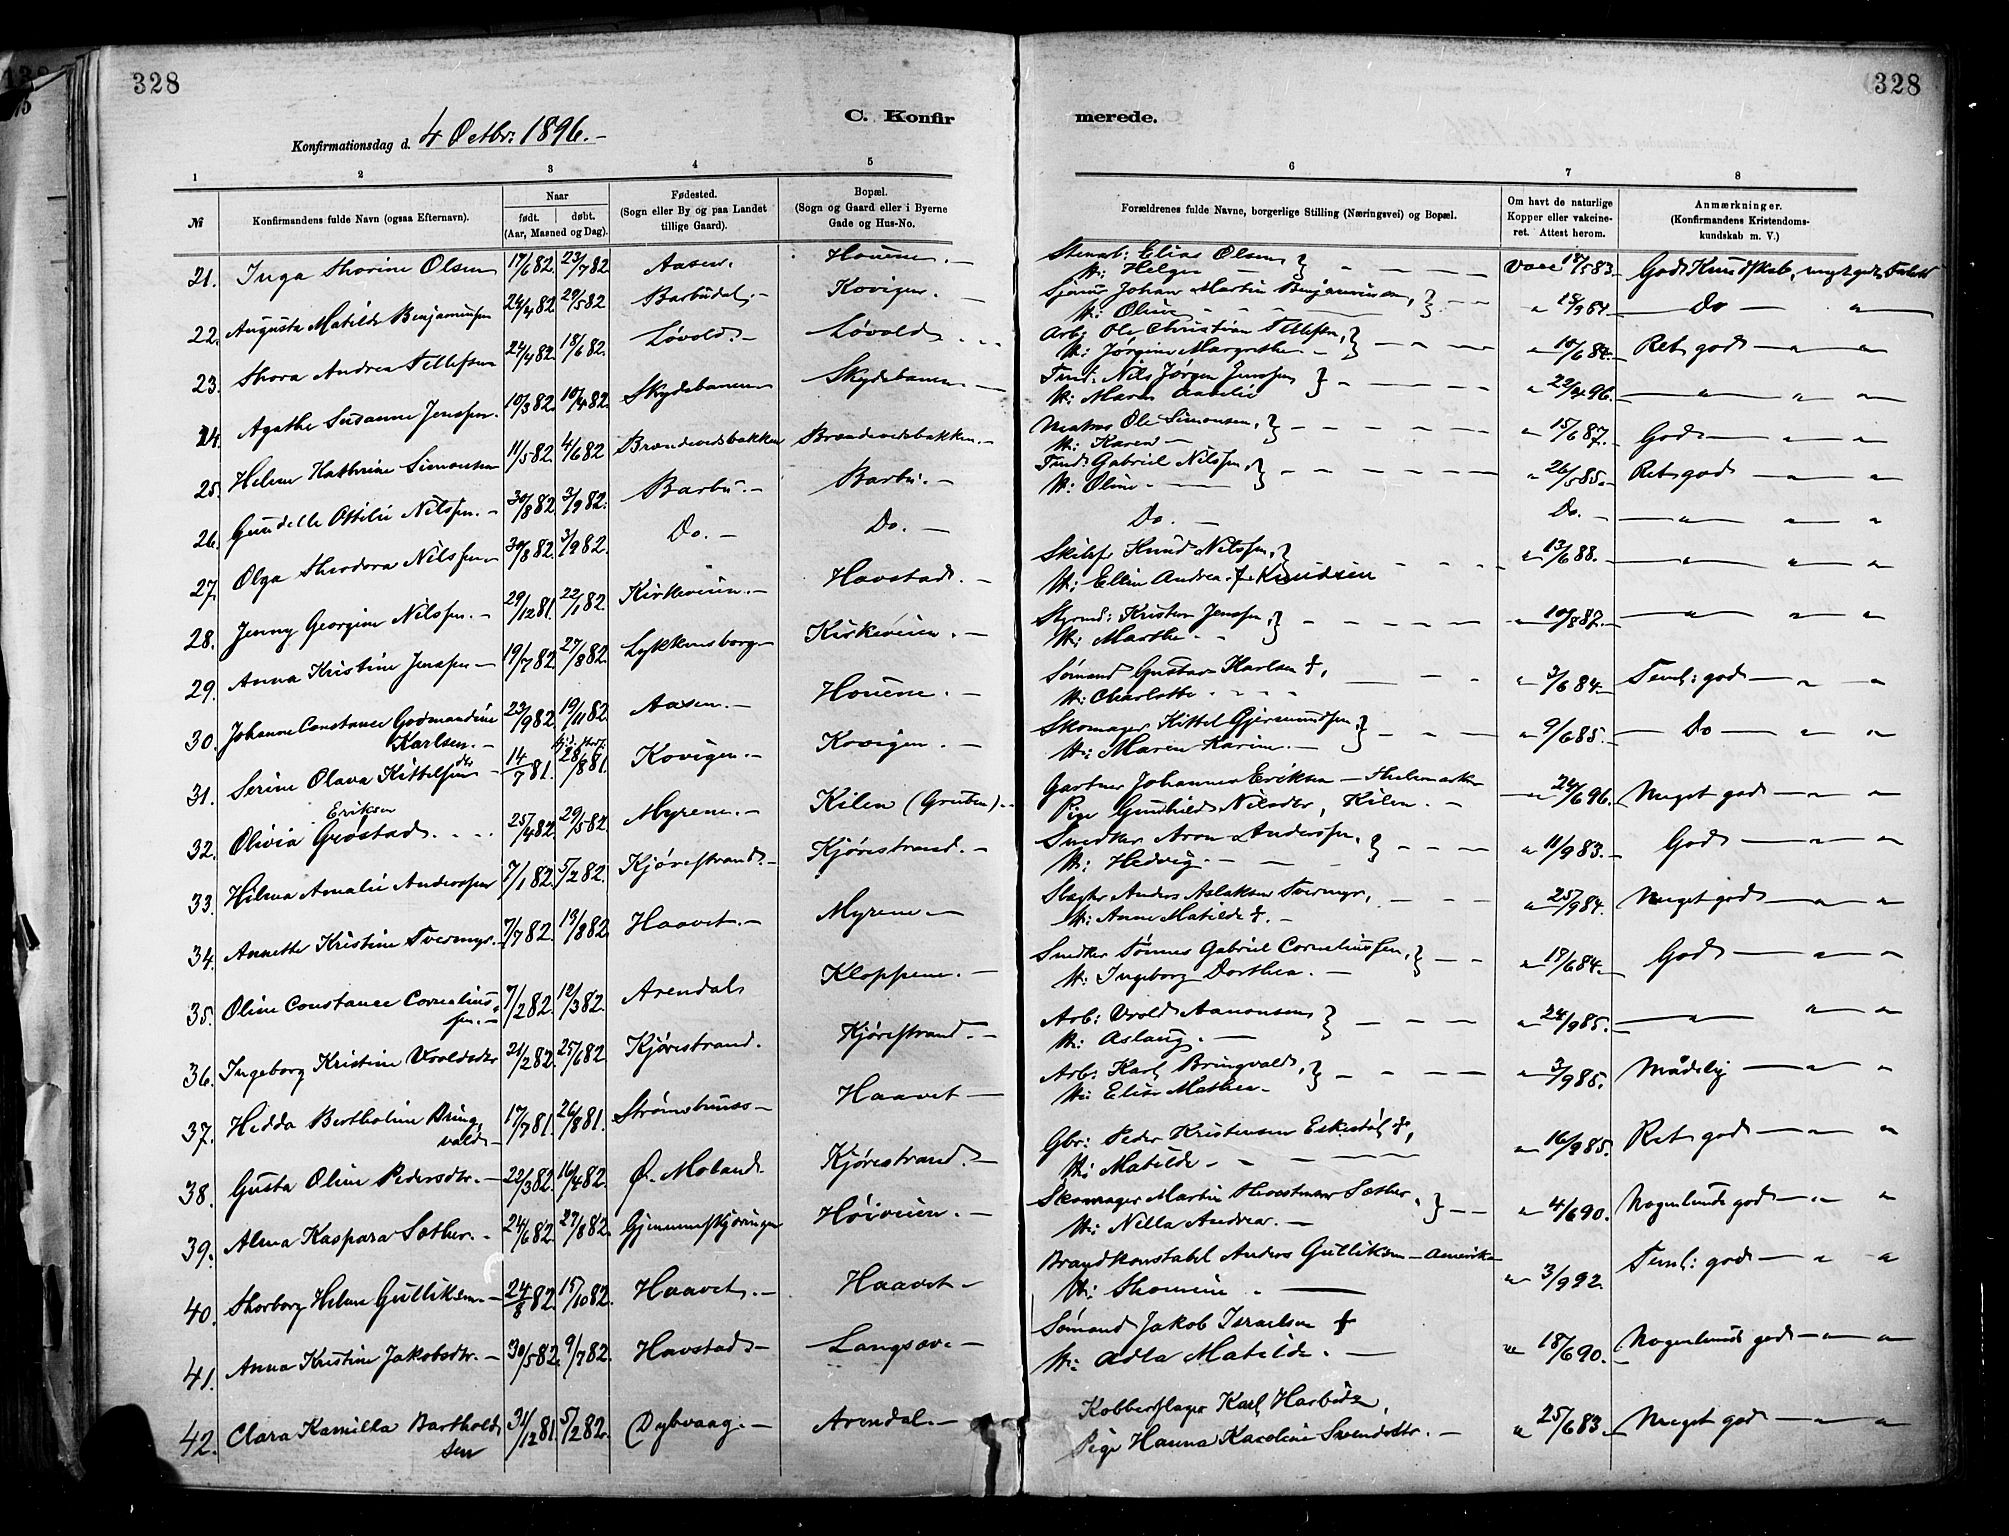 328
328
C. Konfir merede.
Konfirmationsdag d. 4 Octbr. 1896. –
1 2 3 4 5 6 7 8
№ Konfirmandens fulde Navn (ogsaa Efternavn). Naar født. døbt. (Aar, Maaned og Dag). Fødested. (Sogn eller By og paa Landet tillige Gaard). Bopæl. (Sogn og Gaard eller i Byerne Gade og Hus-No. Forældrenes fulde Navne, borgerlige Stilling (Næringsvei) og Bopæl. Om havt de naturlige Kopper eller vakcineret. Attest herom. Anmærkninger. (Konfirmandens Kristendomskundskab m. V.)
21. Inga Thorine Olsen 17/6 82. 23/7 82 Aasen. Houene. – Elias Olsen H: Helga Vacc 18/5 83. God Kundskab, meget god
22. Augusta Matilde Benjaminsen 24/4 82 29/5 82 Barbudal. – Kovigen. – Johan Martin Benjaminsen, H: Oline – Do –
23. Thora Andrea Tellefsen 24/4 82. 18/6 82. Løvold. – Løvold Arb: Ole Christian Tellefsen, H: Jørgine Margrethe – " 18/6 84. Ret god – " "
24. Agathe Susanne Jenssen. 10/3 82. 10/4 82. Skydebanen Skydebanen – Nils Jørgen Jenssen H: Maren " 22/4 96. – " " "
25. Helene Kathrine Simonsen 11/5 82. 4/6 82 Brændevedsbakken Brændevedsbakken. – Matros Ole Simonsen, H: Karen – " 15/6 87. God – " "
26. Gundelle Ottilie Nilssen. – 30/8 82 3/9 82. Barbu. – Barbu. – Gabriel Nilssen, H: Oline – " 26/5 85. Ret god – " "
27. Olga Theodora Nilssen – 30/8 82. 3/9 82. Do. – Do. – Do. – Do. – – " " "
28. Jenny Georgine Nilssen. – 29/12 81. 22/1 82 Kirkeveien. – Havstad. – Knud Nilssen, H: Ellen Andrea f. Knudsen " 13/6 88. – " " "
29. Anna Kristine Jenssen – 19/7 82. 27/8 82. Lykkensborg – Kirkeveien. – Styrmd: Kristen Jenssen, H: Marthe " 10/8 87. – " " "
30. Johanne Constance Godmandine Karlsen. – 23/9 82. 19/11 82. Aasen. – Houene. – Sømand Gustav Karlsen †, H: Charlotte " 3/6 84. Teml: god – " "
31. Serine Olava Kittelsen – 14/7 81. 28/8 81. Kovigen. – Kovigen. – Skomager Kittel Gjermundsen, H: Maren Karine. – " 9/6 85. – Do – " "
32. Olivia Grøstad Eriksen 25/4 82. 29/5 82. Myrene. – Kilen (Gruben). – Gartner Johannes Eriksen – Pige Gunhild Nilsdtr, Kilen. – " 24/6 96. Meget god – " "
33. Hilma Amalie Anderssen 7/1 82. 5/2 82. Kjørestrand. – Kjørestrand. – Snedker Aron Anderssen, H: Hedvig. – " 11/9 83. – God – " "
34. Annette Kristine Tvermyr. – 7/7 82. 13/8 82. Haavet. – Myrene – Anders Aslaksen Tvermyr, H: Anne Matilde †. – " 25/9 84. Meget god – " "
35. Oline Constance Corneliussen. – 7/2 82. 12/3 82. Arendal Kloppene. – Snedker Tønnes Gabriel Corneliussen, H: Ingeborg Dorthea. – " 17/6 84. – God – " "
36. Ingeborg Kristine Vroldsdtr 21/2 82. 25/6 82 Kjørestrand. Kjørestrand. – Arb: Vrold Aanonsen H: Aslaug. – " 24/9 85. – " " "
37. Hedda Bertholine Bringvald – 17/7 81. 26/8 81. Haavet – Arb: Karl Bringvald, H: Elise Mathea – " 3/9 85. Mådelig – " "
38. Gusta Oline Pedersdtr. – 22/3 82. 16/4 82. Ø. Moland. Kjørestrand. – Gbr: Peder Kristensen Eskestøl †, H: Matilde – " 16/9 85. Ret god – " "
39. Alma Kaspara Sæther. – 24/6 82. 27/8 82. Gjennemskjæringen Høiveien. – Skomager Martin Sæther, H: Nilla Andrea. – " 4/6 90. Nogenlunde god – " "
40. Thorborg Helene Gulliksen. – 24/8 82. 15/10 82. Haavet. – Haavet – Brandkonstabel Anders Gulliksen – Amerika H: Thomine " 3/9 92. Teml: god – " "
41. Anna Kristine Jakobsdtr. – 30/5 82. 9/7 82. Havstad – Langsæ. – Sømand Jakob Israelsen † H: Adla Matilde. – " 18/6 90. Nogenlunde god – " "
42. Clara Kamilla Bartholdsen 31/12 81. 5/2 82. Dybvaag. – Arendal. – Kobberslager Karl Pige Hanna Karoline Svendsdtr. – " 25/6 83. Meget god – " "